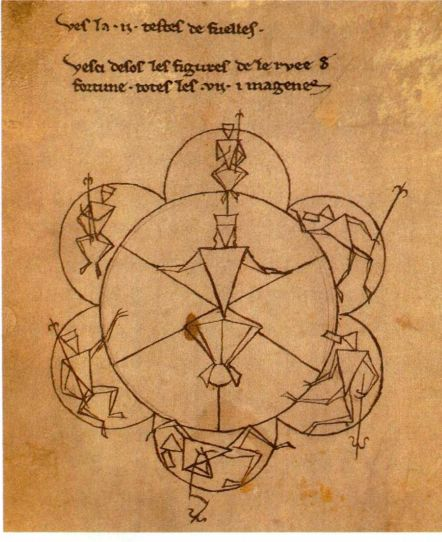 Ves la · ii · testes de fuelles ·
Vesci desos les figures de le ruee d
fortune · totes les · vii · imagenes